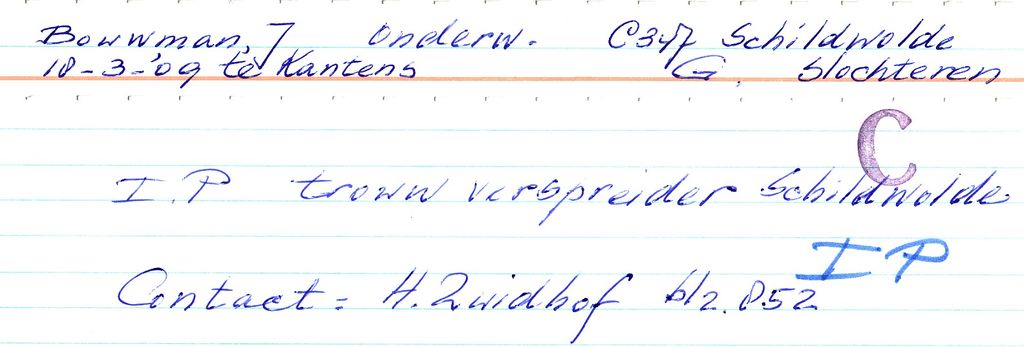 Bouwman, J Onderw. C347 Schildwolde
18-3-'09 te Kantens G. Slochteren
C
I.P trouw verspreider Schildwolde
I P
Contact = H. Zuidhof blz. 852